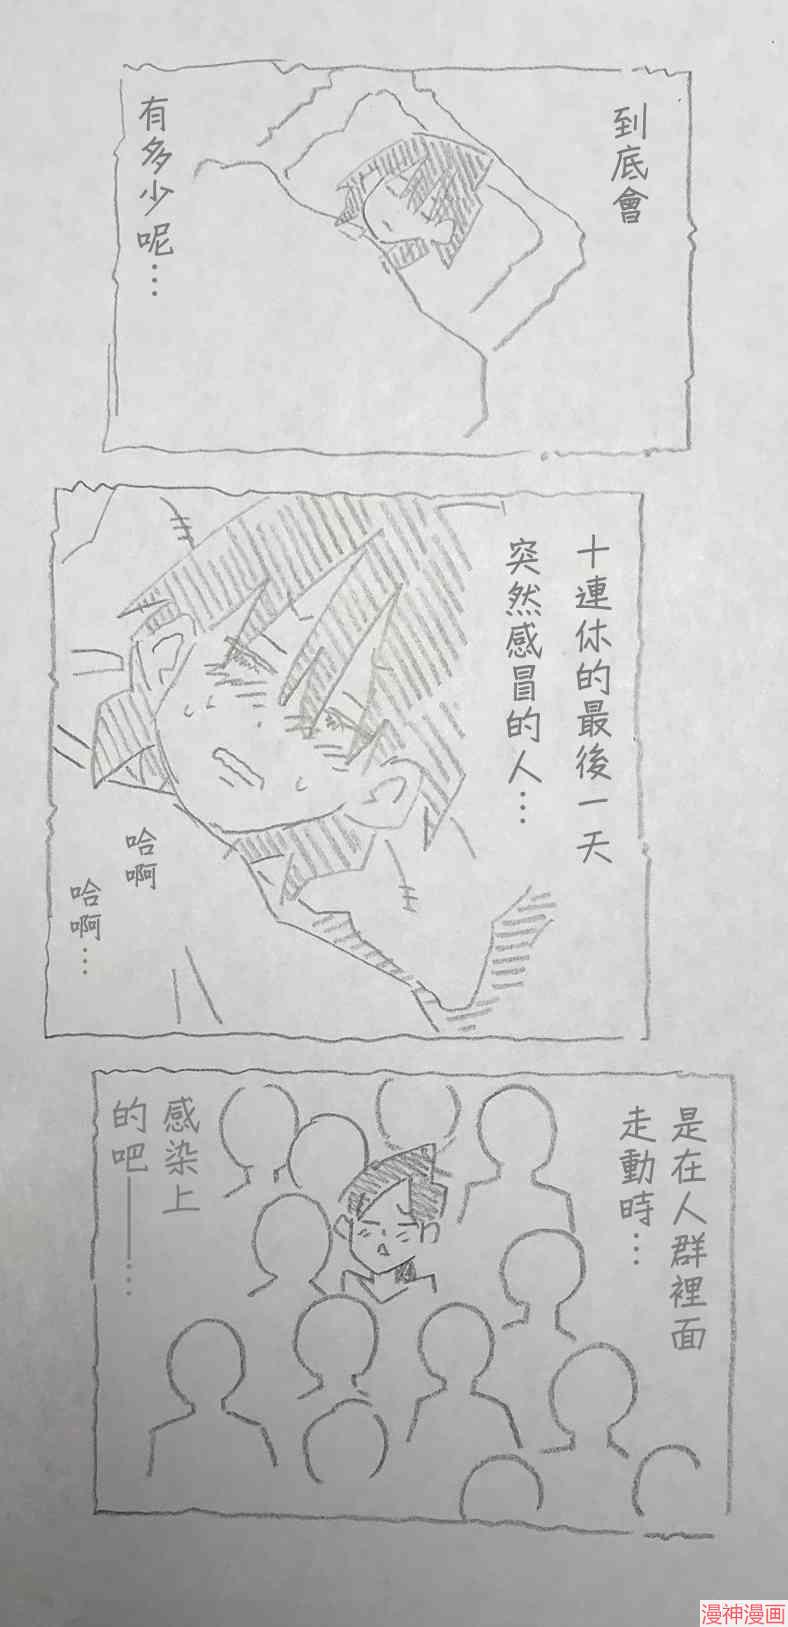 到底會
有多少呢…
十連休的最後一天
突然感冒的人…
哈啊
哈啊…
是在人群裡面
走動時…
感染上
的吧——…
漫神漫画